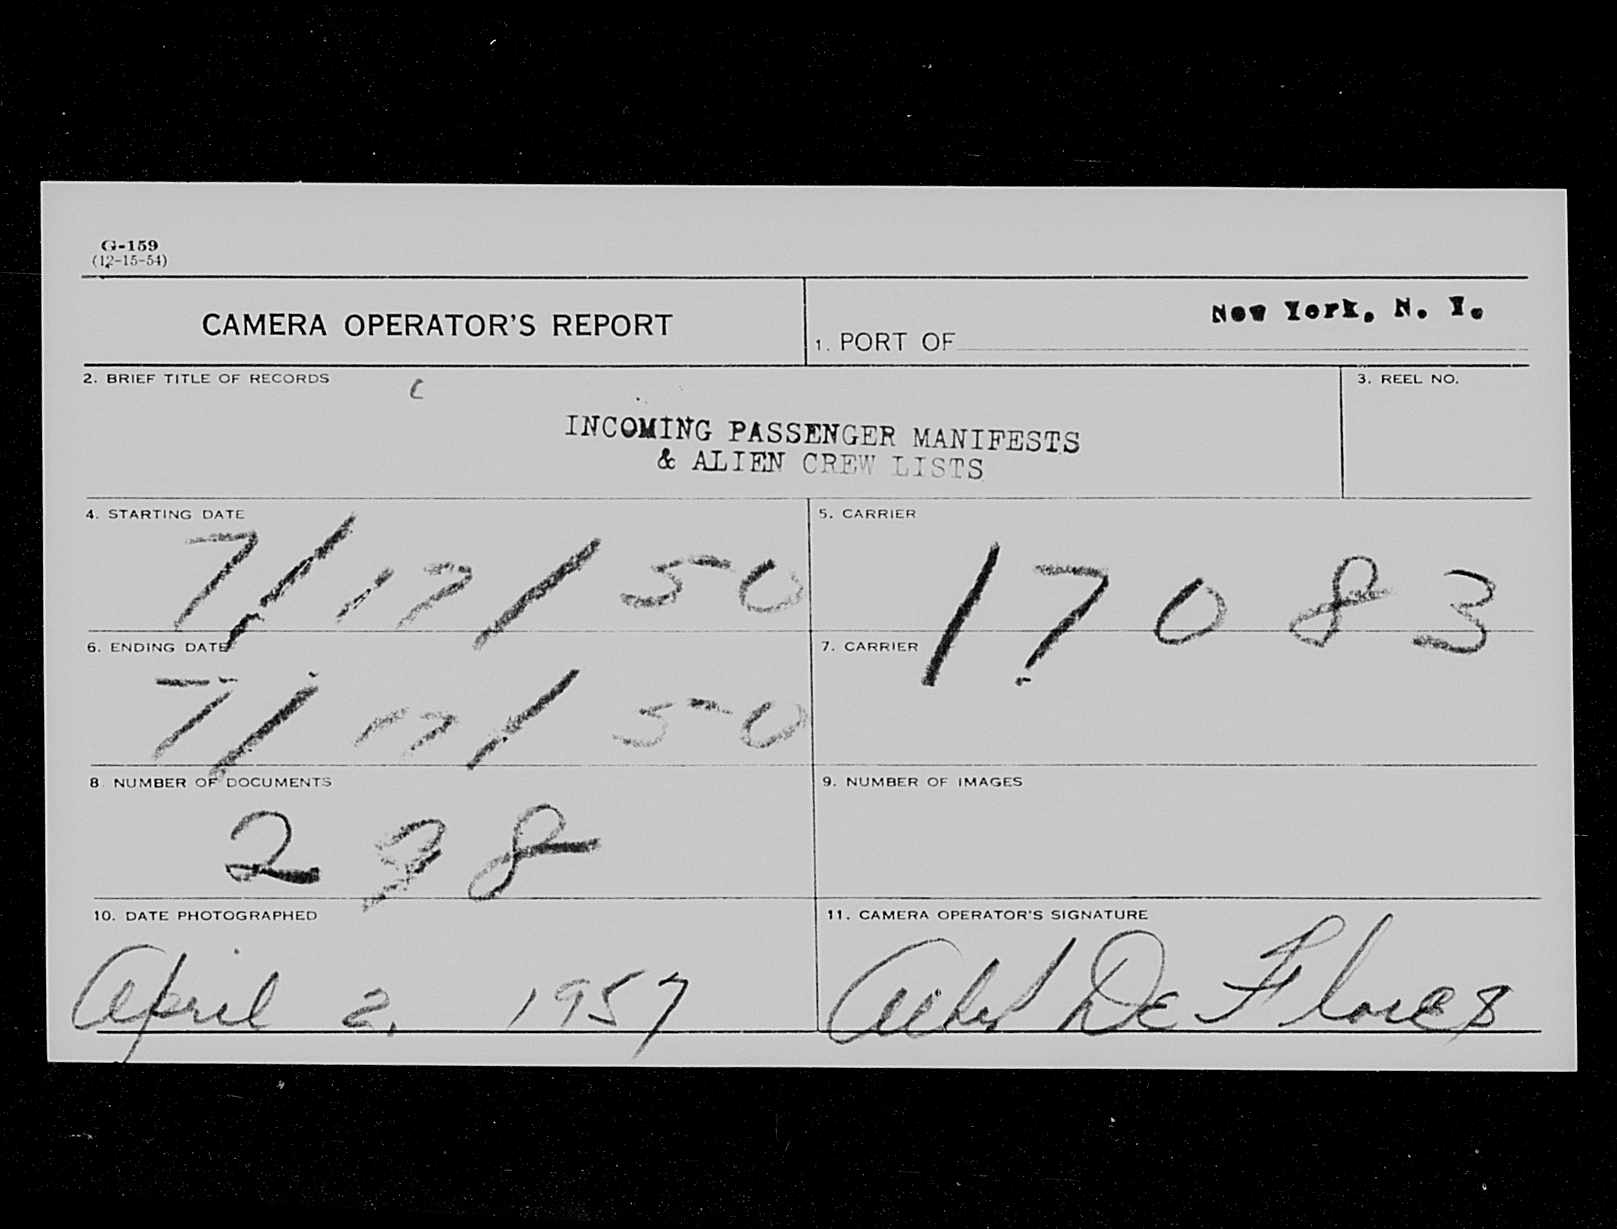 G-159
(12-15-54)
CAMERA OPERATOR'S REPORT
1. PORT OF New York, N. Y.
2. BRIEF TITLE OF RECORDS
3. REEL NO.
INCOMING PASSENGER MANIFESTS
& ALIEN CREW LISTS
4. STARTING DATE
7/17/50
5. CARRIER
17083
6. ENDING DATE
7/17/50
7. CARRIER
8. NUMBER OF DOCUMENTS
298
9. NUMBER OF IMAGES
10. DATE PHOTOGRAPHED
April 2, 1957
11. CAMERA OPERATOR'S SIGNATURE
De Flores